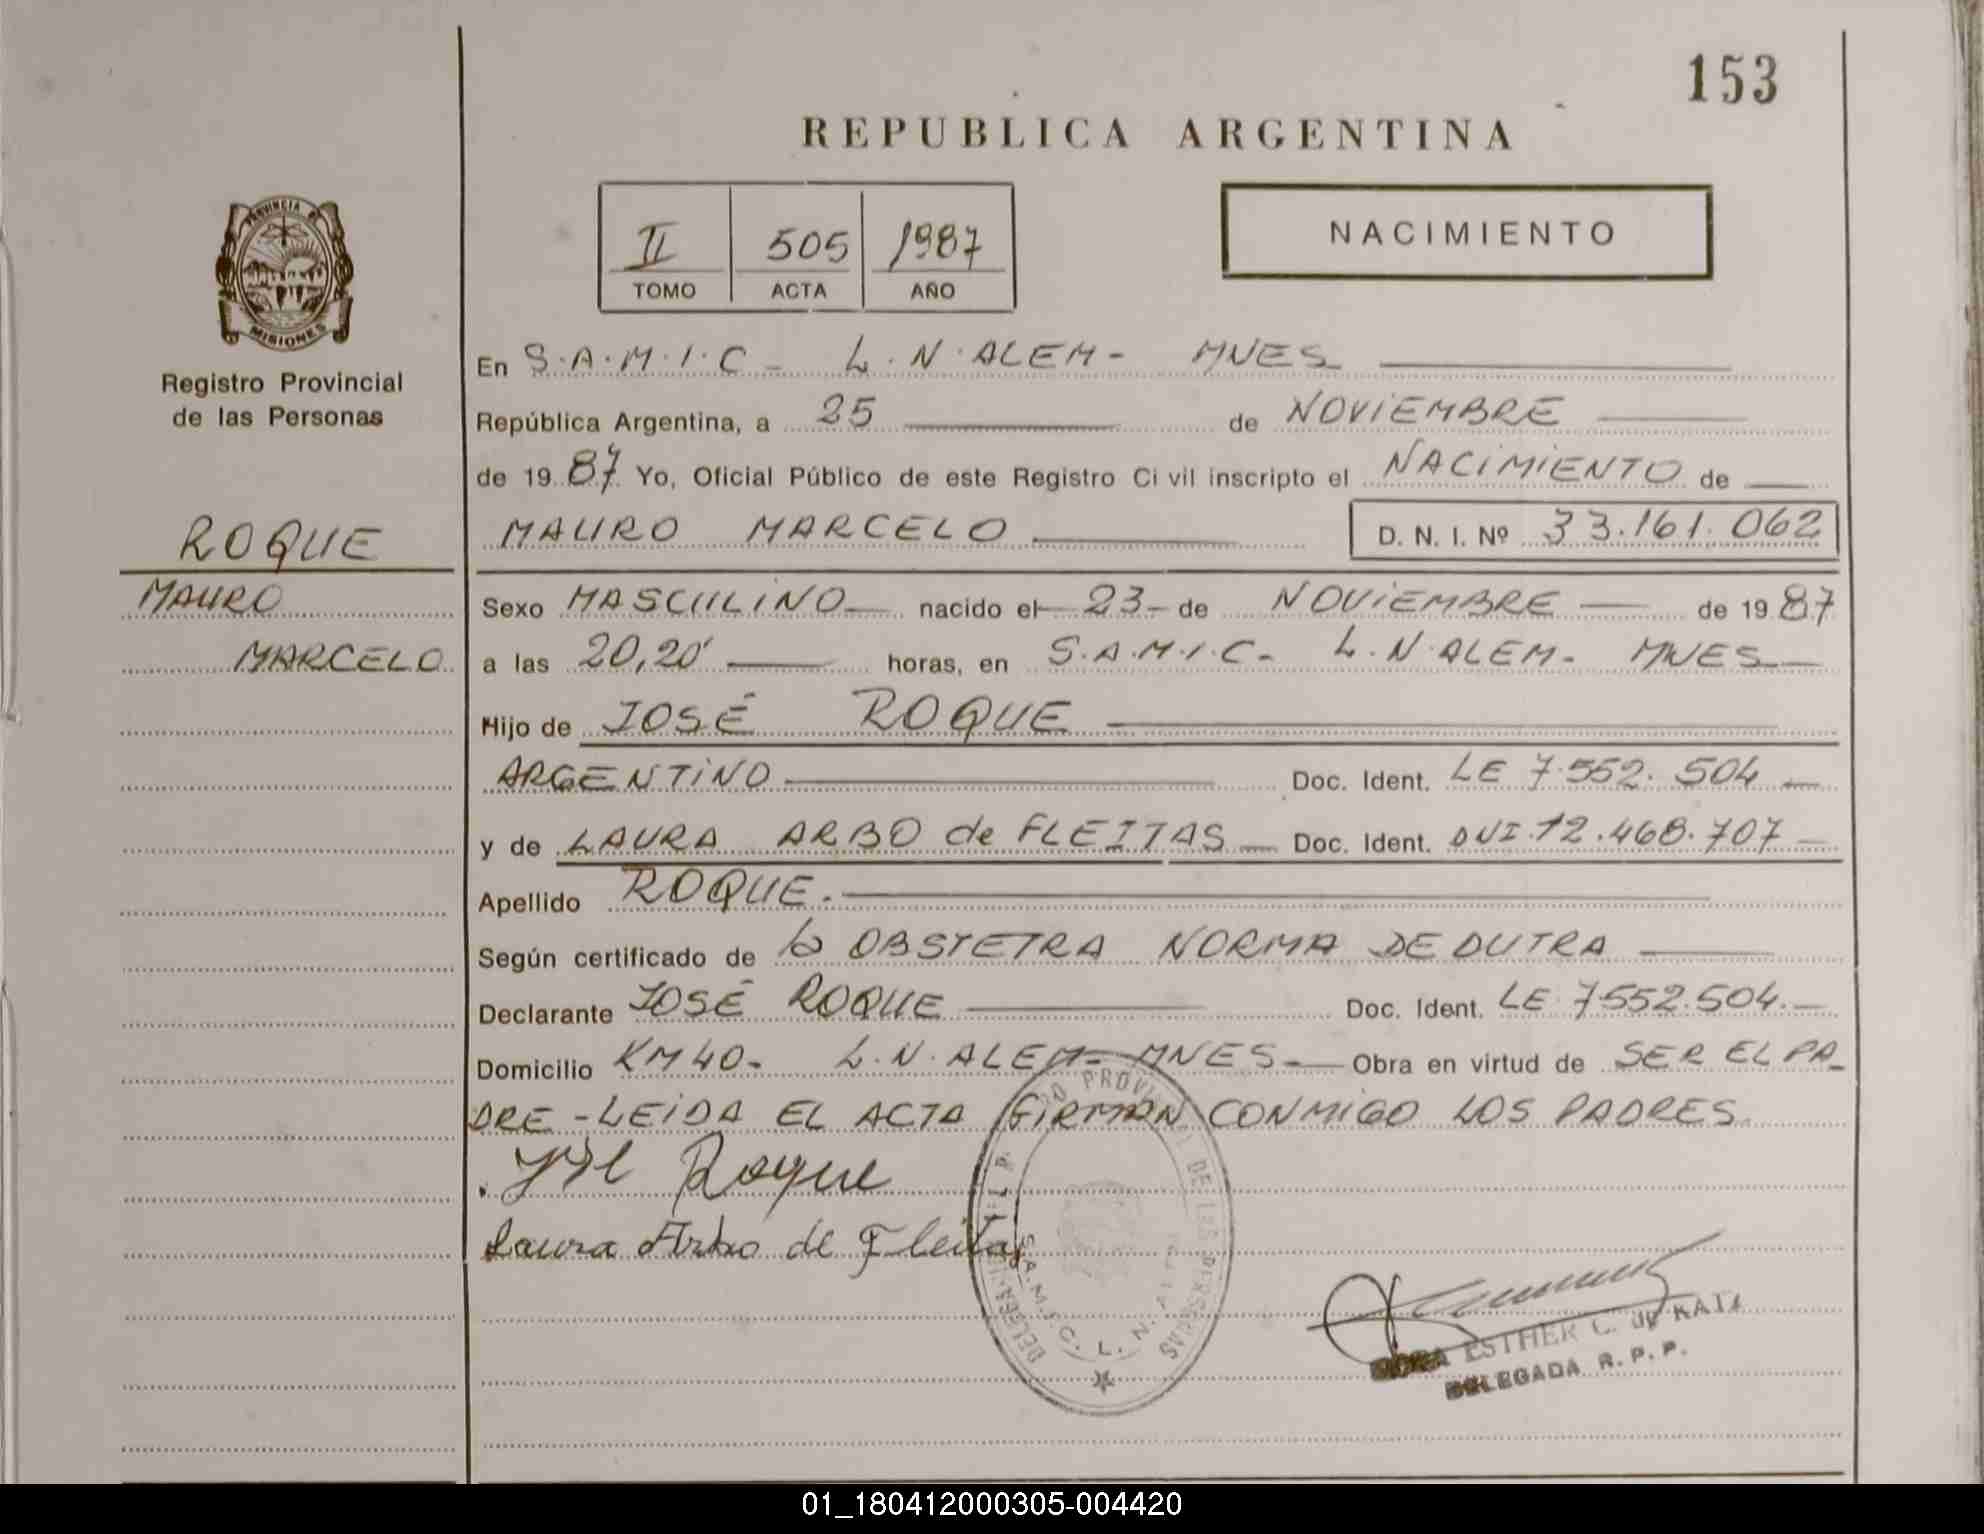 153
REPUBLICA ARGENTINA
II 505 1987
TOMO ACTA AÑO
NACIMIENTO
PROVINCIA DE
MISIONES
Registro Provincial
de las Personas
ROQUE
MAURO
MARCELO
En S.A.M.I.C - L.N.ALEM - MNES
República Argentina, a 25 de NOVIEMBRE
de 1987 Yo, Oficial Público de este Registro Ci vil inscripto el NACIMIENTO de
MAURO MARCELO D. N. I. Nº 33.161.062
Sexo MASCULINO nacido el 23 - de NOVIEMBRE de 1987
a las 20,20 horas, en S.A.M.I.C - L.N.ALEM - MNES
Hijo de JOSÉ ROQUE
ARGENTINO Doc. Ident. LE 7.552.504
y de LAURA ARBO de FLEITAS Doc. Ident. DNI.12.468.707
Apellido ROQUE.
Según certificado de la OBSTETRA NORMA DE DUTRA
Declarante JOSÉ ROQUE Doc. Ident. LE 7552.504.
Domicilio KM 40 - L.N. ALEM - MNES - Obra en virtud de SER EL PA-
DRE - LEIDA EL ACTA FIRMAN CONMIGO LOS PADRES.
Roque
Laura Arbo de Fleitas
PROVINCIAL DE LAS PERSONAS
S.A.M.I.C. L. N.
ESTHER C. de KATZ
DELEGADA R. P. P.
01_180412000305-004420